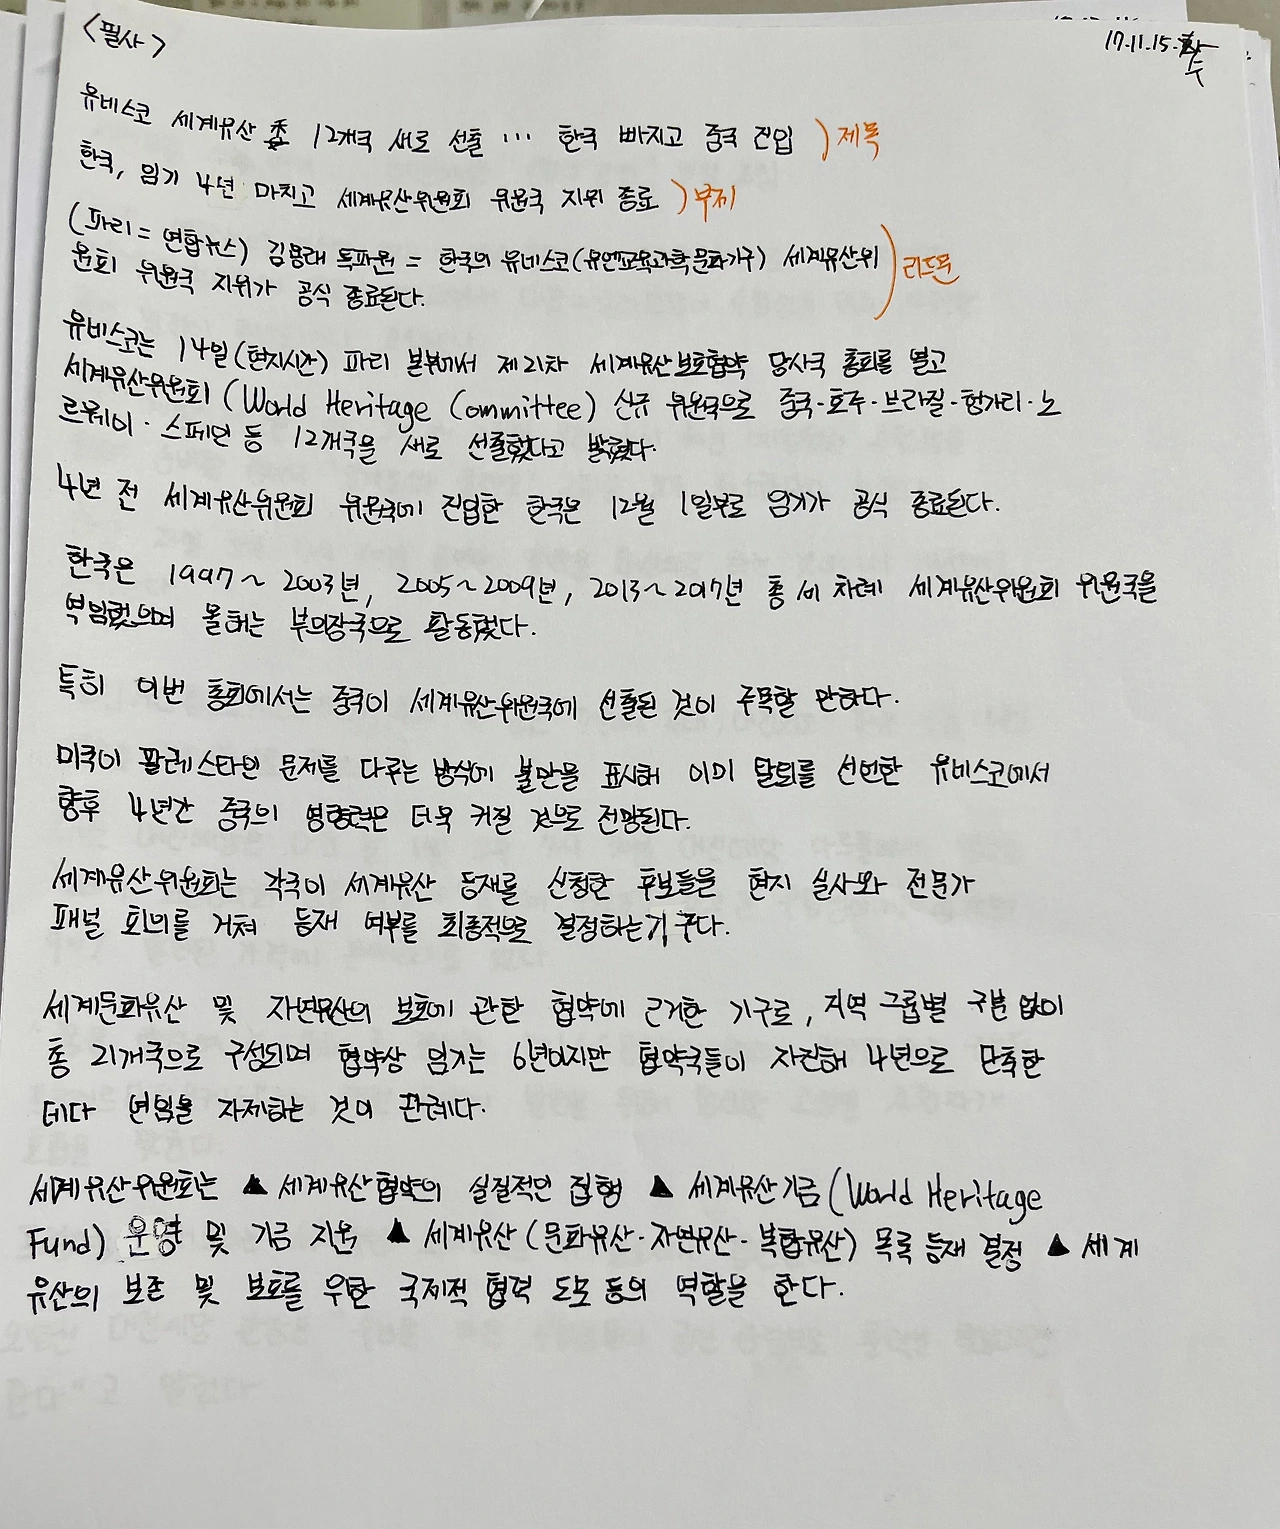 <필사>
17.11.15.수
유네스코 세계유산 委 12개국 새로 선출 … 한국 빠지고 중국 진입 ) 제목
한국, 임기 4년 마치고 세계유산위원회 위원국 지위 종료 ) 부제
(파리 = 연합뉴스) 김용래 특파원 = 한국의 유네스코(유엔교육과학문화기구) 세계유산위
원회 위원국 지위가 공식 종료된다. ) 리드문
유네스코는 14일(현지시간) 파리 본부에서 제21차 세계유산보호협약 당사국 총회를 열고
세계유산위원회 (World Heritage Committee) 신규 위원국으로 중국·호주·브라질·헝가리·노
르웨이·스페인 등 12개국을 새로 선출했다고 밝혔다.
4년 전 세계유산위원회 위원국에 진입한 한국은 12월 1일부로 임기가 공식 종료된다.
한국은 1997~2003년, 2005~2009년, 2013~2017년 총 세 차례 세계유산위원회 위원국을
역임했으며 올해는 부의장국으로 활동했다.
특히 이번 총회에서는 중국이 세계유산위원국에 선출된 것이 주목할 만하다.
미국이 팔레스타인 문제를 다루는 방식에 불만을 표시해 이미 탈퇴를 선언한 유네스코에서
향후 4년간 중국의 영향력은 더욱 커질 것으로 전망된다.
세계유산위원회는 각국이 세계유산 등재를 신청한 후보들을 현지 실사와 전문가
패널 회의를 거쳐 등재 여부를 최종적으로 결정하는 기구다.
세계문화유산 및 자연유산의 보호에 관한 협약에 근거한 기구로, 지역 그룹별 구분 없이
총 21개국으로 구성되며 협약상 임기는 6년이지만 협약국들이 자진해 4년으로 단축한
데다 연임을 자제하는 것이 관례다.
세계유산위원회는 ▲ 세계유산협약의 실질적인 집행 ▲ 세계유산기금 (World Heritage
Fund) 운영 및 기금 지원 ▲ 세계유산 (문화유산·자연유산·복합유산) 목록 등재 결정 ▲ 세계
유산의 보존 및 보호를 위한 국제적 협력 도모 등의 역할을 한다.